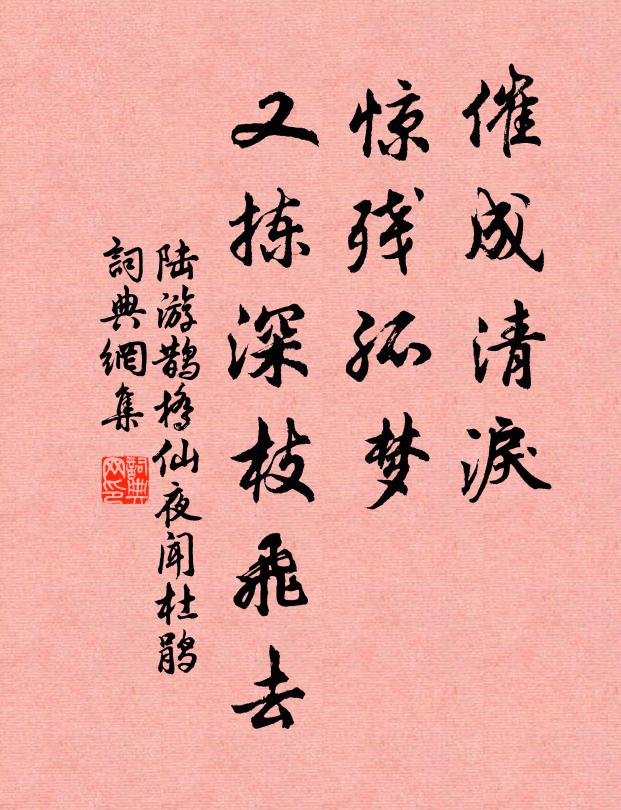 催成清淚
惊残孤梦
又拣深枝飛去
陆游鹊橋仙夜闻杜鹃
詞典網集
詞典网印